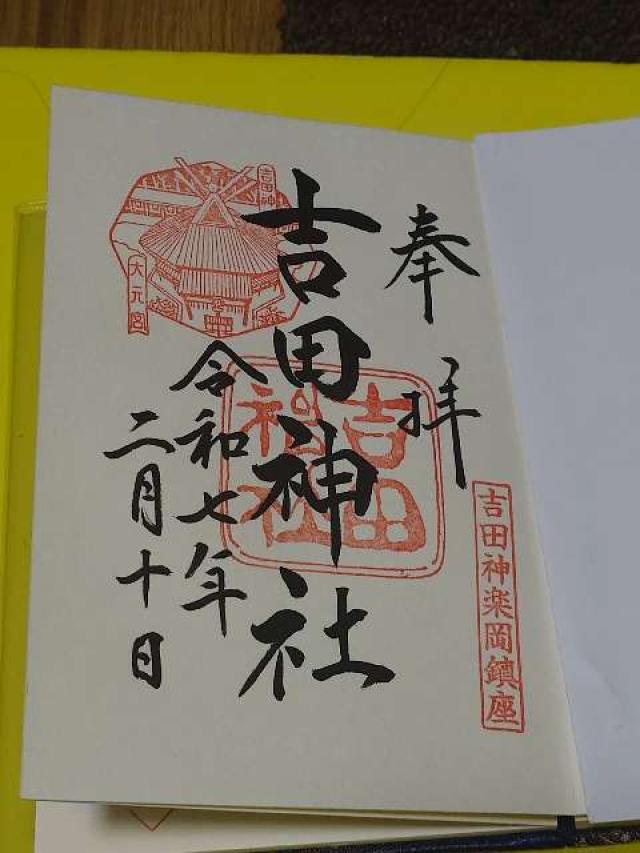 奉拝
吉田神楽岡鎮座
吉田神社
吉田神社
令和七年
二月十日
吉田神
大元宮